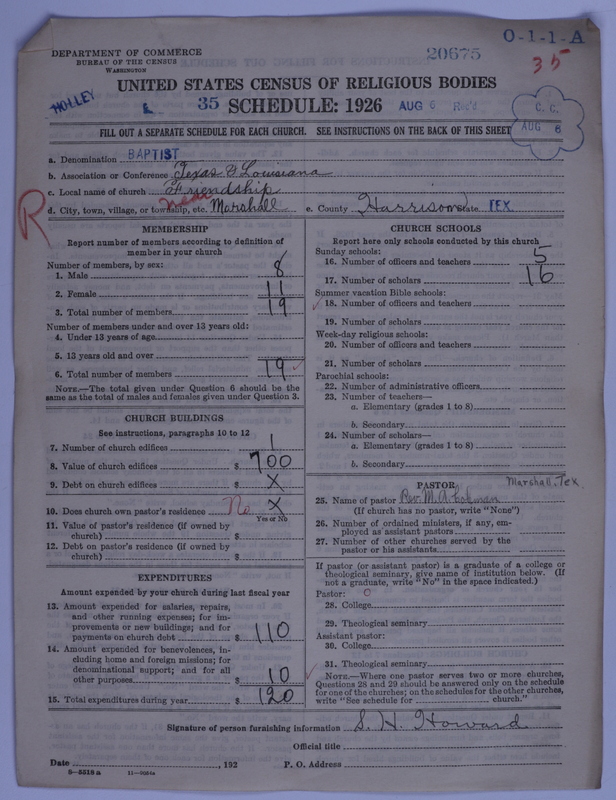 O-1-1-A
DEPARTMENT OF COMMERCE
BUREAU OF THE CENSUS
WASHINGTON
20675
35
UNITED STATES CENSUS OF RELIGIOUS BODIES
HOLLEY
35 SCHEDULE: 1926 AUG 6 Rec'd
C. C.
AUG 6
FILL OUT A SEPARATE SCHEDULE FOR EACH CHURCH. SEE INSTRUCTIONS ON THE BACK OF THIS SHEET
a. Denomination BAPTIST
b. Association or Conference Texas & Louisiana
c. Local name of church Friendship
R
d. City, town, village, or township, etc. near Marshall e. County Harrison State TEX.
MEMBERSHIP
Report number of members according to definition of
member in your church
Number of members, by sex:
1. Male 8
2. Female 11
3. Total number of members 19
Number of members under and over 13 years old:
4. Under 13 years of age
5. 13 years old and over
6. Total number of members 19
NOTE.—The total given under Question 6 should be the
same as the total of males and females given under Question 3.
CHURCH BUILDINGS
See instructions, paragraphs 10 to 12
7. Number of church edifices 1
8. Value of church edifices $ 700
9. Debt on church edifices $ X
10. Does church own pastor's residence No X
Yes or No
11. Value of pastor's residence (if owned by
church) $
12. Debt on pastor's residence (if owned by
church) $
EXPENDITURES
Amount expended by your church during last fiscal year
13. Amount expended for salaries, repairs,
and other running expenses; for im-
provements or new buildings; and for
payments on church debt $ 110
14. Amount expended for benevolences, in-
cluding home and foreign missions; for
denominational support; and for all
other purposes $ 10
15. Total expenditures during year $ 120
CHURCH SCHOOLS
Report here only schools conducted by this church
Sunday schools:
16. Number of officers and teachers 5
17. Number of scholars 16
Summer vacation Bible schools:
18. Number of officers and teachers
19. Number of scholars
Week-day religious schools:
20. Number of officers and teachers
21. Number of scholars
Parochial schools:
22. Number of administrative officers
23. Number of teachers—
a. Elementary (grades 1 to 8)
b. Secondary
24. Number of scholars—
a. Elementary (grades 1 to 8)
b. Secondary
PASTOR
Marshall, Tex
25. Name of pastor Rev. M. A.
(If church has no pastor, write "None")
26. Number of ordained ministers, if any, em-
ployed as assistant pastors
27. Number of other churches served by the
pastor or his assistants
If pastor (or assistant pastor) is a graduate of a college or
theological seminary, give name of institution below. (If
not a graduate, write "No" in the space indicated.)
Pastor:
28. College
29. Theological seminary
Assistant pastor:
30. College
31. Theological seminary
NOTE.—Where one pastor serves two or more churches,
Questions 28 and 29 should be answered only on the schedule
for one of the churches; on the schedules for the other churches,
write "See schedule for church."
Signature of person furnishing information S. H. Howard
Official title
Date , 192 P. O. Address
8—5518a 11—9064a